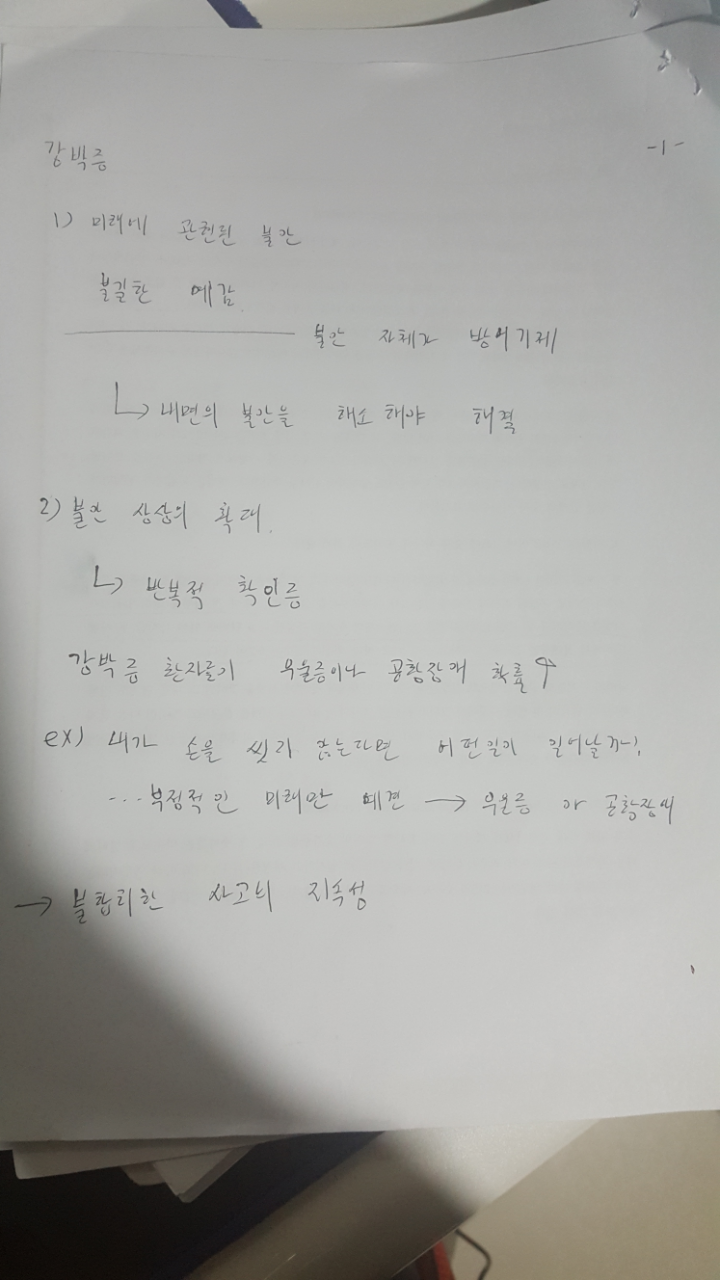 강박증
-1-
1) 미래에 관련된 불안
불길한 예감.
불안 자체가 방어기제
↳ 내면의 불안을 해소해야 해결
2) 불안 상상의 확대.
↳ 반복적 확인증
강박증 환자들이 우울증이나 공황장애 확률↑
ex) 내가 손을 씻지 않는다면 어떤일이 일어날까?
...부정적인 미래만 예견 → 우울증 or 공황장애
→ 불합리한 사고의 지속성